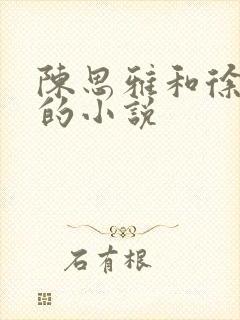 陳思雅和徐
的小說
石有根